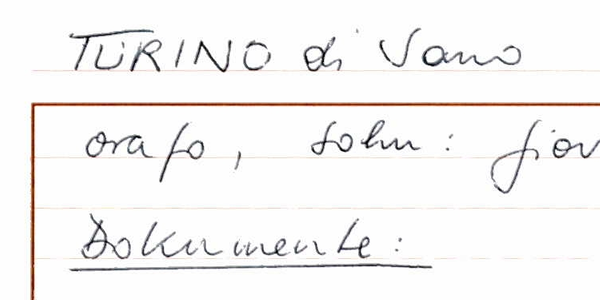 TURINO di Vano
orafo, Sohn: Giov
Dokumente: